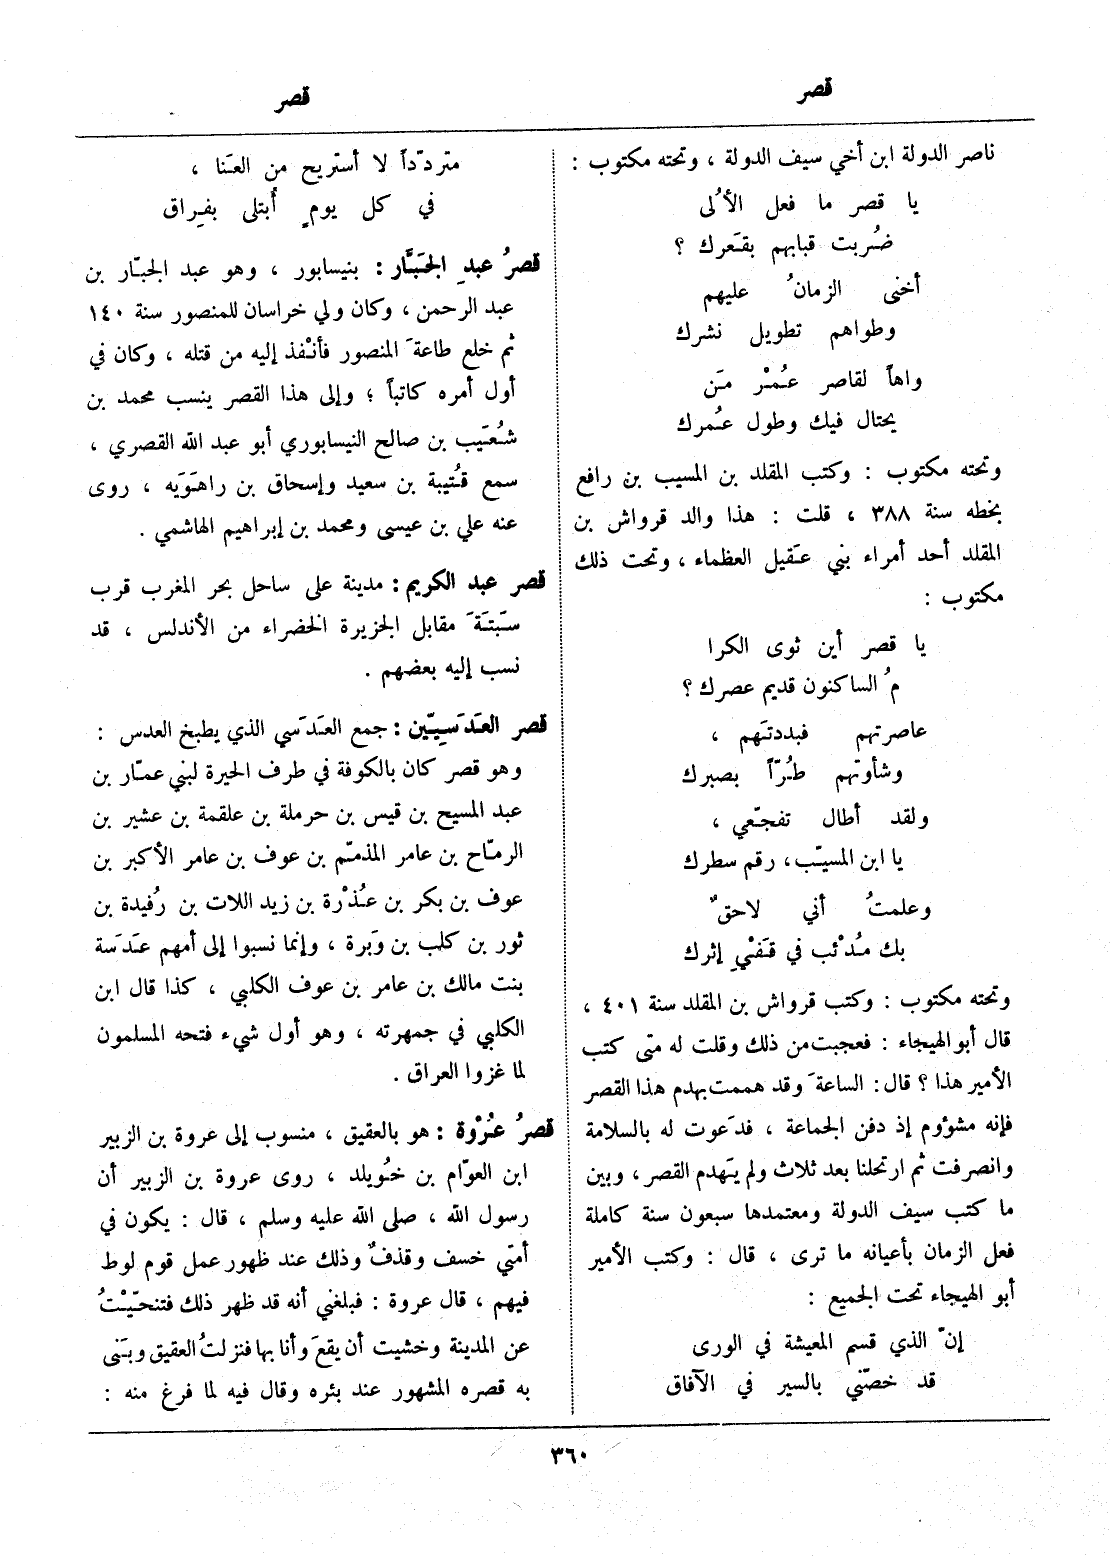 قصر
قصر
ناصر الدولة ابن أخي سيف الدولة ، وتحته مكتوب :
يا قصر ما فعل الأُلى
ضُربت قبابهم بقَعرك ؟
أخنى الزمانُ عليهم
وطواهم تطويل نشرك
واهاً لقاصر عُمْر مَن
يحتال فيك وطول عُمرك
وتحته مكتوب : وكتب المقلد بن المسيب بن رافع
بخطه سنة ٣٨٨ ، قلت : هذا والد قرواش بن
المقلد أحد أمراء بني عَقيل العظماء ، وتحت ذلك
مكتوب :
يا قصر أين ثوى الكرا
مُ الساكنون قديم عصرك ؟
عاصرتهم فبددتَهم ،
وشأوتهم طُرّاً بصبرك
ولقد أطال تفجّعي ،
يا ابن المسيّب، رقم سطرك
وعلمتُ أني لاحقٌ
بك مُدْئب في قَفْيِ إثرك
وتحته مكتوب : وكتب قرواش بن المقلد سنة ٤٠١ ،
قال أبو الهيجاء : فعجبت من ذلك وقلت له متى كتب
الأمير هذا ؟ قال : الساعةَ وقد هممت بهدم هذا القصر
فإنه مشوُوم إذ دفن الجماعة ، فدَعوت له بالسلامة
وانصرفت ثم ارتحلنا بعد ثلاث ولم يَهدم القصر ، وبين
ما كتب سيف الدولة ومعتمدها سبعون سنة كاملة
فعل الزمان بأعيانه ما ترى ، قال : وكتب الأمير
أبو الهيجاء تحت الجميع :
إنّ الذي قسم المعيشة في الورى
قد خصّني بالسير في الآفاق
متردّداً لا أستريح من العَنا ،
في كل يومٍ أُبتلى بفِراق
قصرُ عبدِ الجَبَّار : بنيسابور ، وهو عبد الجبّار بن
عبد الرحمن ، وكان ولي خراسان للمنصور سنة ١٤٠
ثم خلع طاعةَ المنصور فأنْفذ إليه من قتله ، وكان في
أول أمره كاتباً ؛ وإلى هذا القصر ينسب محمد بن
شُعَيب بن صالح النيسابوري أبو عبد الله القصري ،
سمع قُتيبة بن سعيد وإسحاق بن راهَوَيه ، روى
عنه علي بن عيسى ومحمد بن إبراهيم الهاشمي .
قصر عبد الكريم : مدينة على ساحل بحر المغرب قرب
سَبتَةَ مقابل الجزيرة الخضراء من الأندلس ، قد
نسب إليه بعضهم .
قصر العَدَسِيّين : جمع العَدَسي الذي يطبخ العدس :
وهو قصر كان بالكوفة في طرف الحيرة لبني عمّار بن
عبد المسيح بن قيس بن حرملة بن علقمة بن عشير بن
الرمّاح بن عامر المذمّم بن عوف بن عامر الأكبر بن
عوف بن بكر بن عُذْرة بن زيد اللات بن رُفيدة بن
ثور بن كلب بن وَبرة ، وإنما نسبوا إلى أمهم عَدَسة
بنت مالك بن عامر بن عوف الكلبي ، كذا قال ابن
الكلبي في جمهرته ، وهو أول شيء فتحه المسلمون
لما غزوا العراق .
قصرُ عُرْوة : هو بالعقيق ، منسوب إلى عروة بن الزبير
ابن العوّام بن خُويلد ، روى عروة بن الزبير أن
رسول الله ، صلى الله عليه وسلم ، قال : يكون في
أمتي خسف وقذفٌ وذلك عند ظهور عمل قوم لوط
فيهم ، قال عروة : فبلغني أنه قد ظهر ذلك فتنحّيْتُ
عن المدينة وخشيت أن يقعَ وأنا بها فنزلتُ العقيق وبَنى
به قصره المشهور عند بئره وقال فيه لما فرغ منه :
٣٦٠